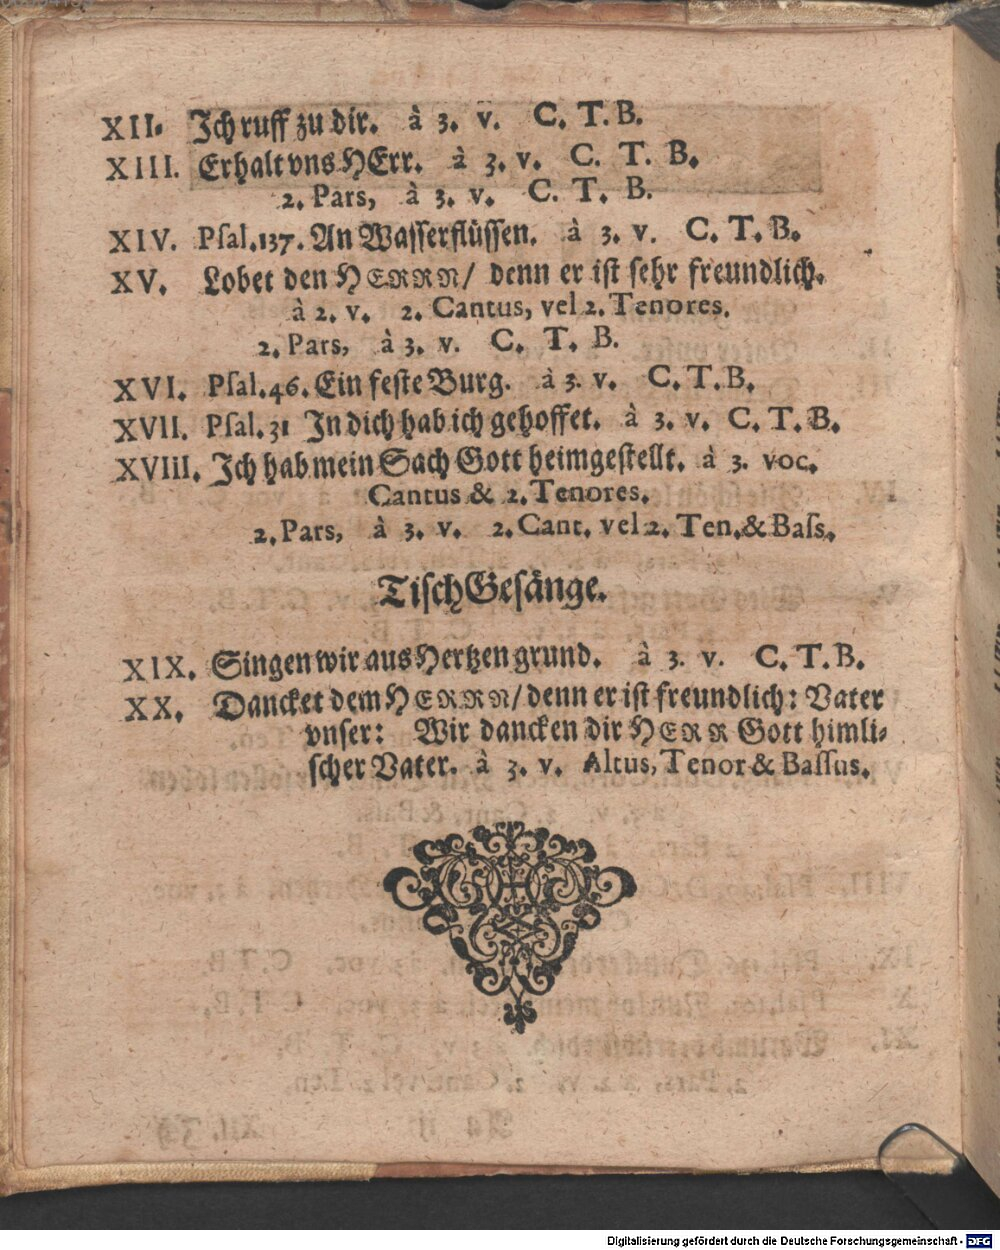 XII. Ich ruff zu dir. à 3. v. C. T. B.
XIII. Erhalt vns HErr. à 3. v. C. T. B.
2. Pars, à 3. v. C. T. B.
XIV. Psal. 137. An Wasserflüssen. à 3. v. C. T. B.
XV. Lobet den HERRN/ denn er ist sehr freundlich.
à 2. v. 2. Cantus, vel 2. Tenores.
2. Pars, à 3. v. C. T. B.
XVI. Psal. 46. Ein feste Burg. à 3. v. C. T. B.
XVII. Psal. 31 In dich hab ich gehoffet. à 3. v. C. T. B.
XVIII. Ich hab mein Sach Gott heimgestellt. à 3. voc.
Cantus & 2. Tenores.
2. Pars, à 3. v. 2. Cant. vel 2. Ten. & Bass.
TischGesänge.
XIX. Singen wir aus Hertzen grund. à 3. v. C. T. B.
XX. Dancket dem HERRN/ denn er ist freundlich: Vater
vnser: Wir dancken dir HERR Gott himli-
scher Vater. à 3. v. Altus, Tenor & Bassus.
Digitalisierung gefördert durch die Deutsche Forschungsgemeinschaft - DFG